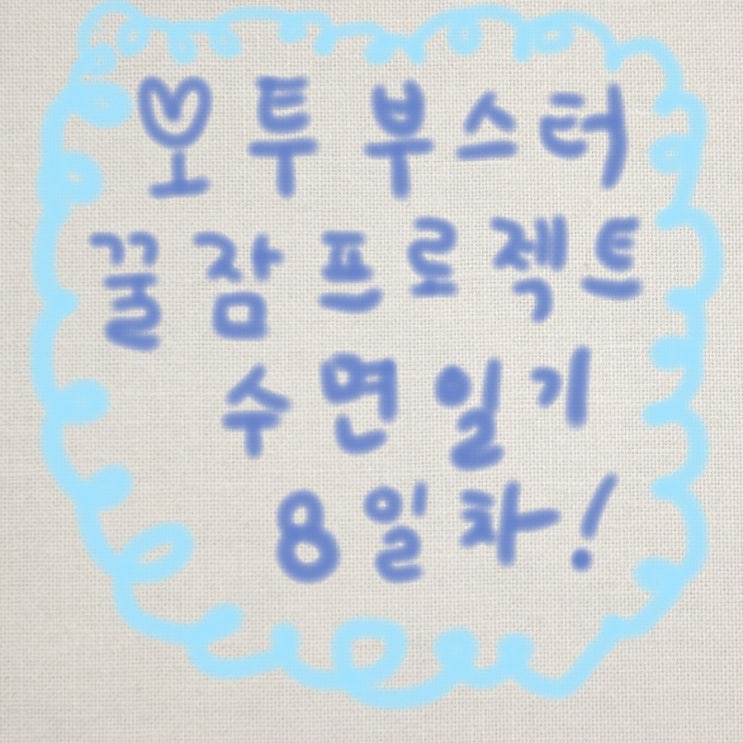 오투부스터
꿀잠프로젝트
수면일기
8일차!